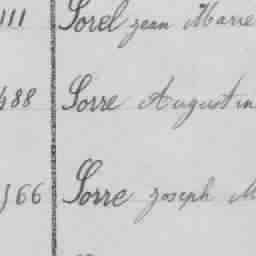 111 Sorel jean Marie
488 Sorre Augustin
566 Sorre joseph M